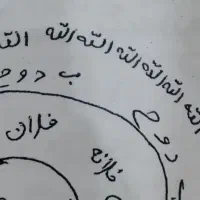 الله الله الله الله الله الله الله
ب د و ح
د و ح
فلان
فلانه